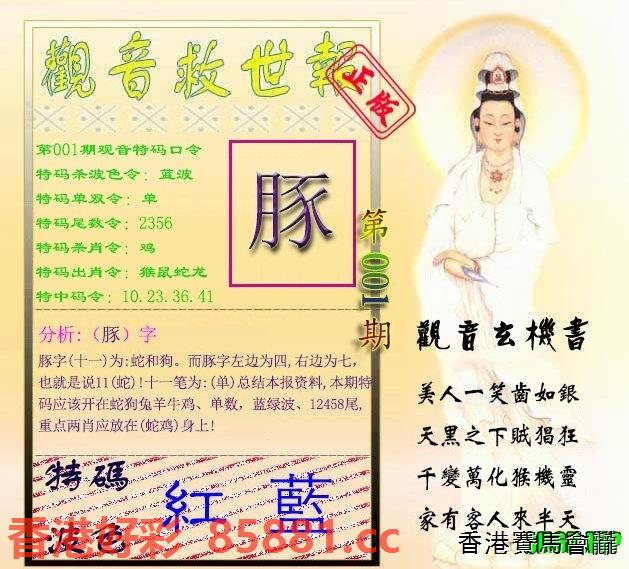 觀音救世報
正版
第001期观音特码口令
特码杀波色令：蓝波
特码单双令：单
特码尾数令：2356
特码杀肖令：鸡
特码出肖令：猴鼠蛇龙
特中码令：10.23.36.41
豚
第001期
分析：（豚）字
豚字(十一)为:蛇和狗。而豚字左边为四,右边为七,
也就是说11(蛇)!十一笔为:(单)总结本报资料,本期特
码应该开在蛇狗兔羊牛鸡、单数，蓝绿波、12458尾,
重点两肖应放在(蛇鸡)身上!
特碼
波色
紅 藍
觀音玄機書
美人一笑齒如銀
天黑之下賊猖狂
千變萬化猴機靈
家有客人來半天
香港好彩 85881.cc
香港賽馬會